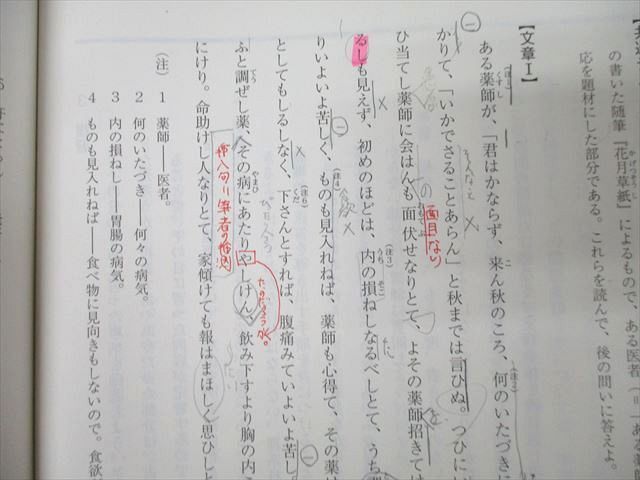 の書いた随筆『花月草紙』によるもので、ある医者（＝ある薬師
応を題材にした部分である。これらを読んで、後の問いに答えよ。
【文章Ⅰ】
ある薬師が、「君はかならず、来ん秋のころ、何のいたづきに
かりて、「いかでさることあらん」と秋までは言ひぬ。つひにい
ひ当てし薬師に会はんも面伏せなりとて、よその薬師招きては
るしも見えず、初めのほどは、内の損ねしなるべしとて、うち
りいよいよ苦しく、ものも見入れねば、薬師も心得て、その薬は
としてもしるしなく、下さんとすれば、腹痛みていよいよ苦し。
ふと調ぜし薬、その病にあたりやしけん、飲み下すより胸の内こ
にけり。命助けし人なりとて、家傾けても報はまほしく思ひしと
（注）
1 薬師――医者。
2 何のいたづき――何々の病気。
3 内の損ねし――胃腸の病気。
4 ものも見入れねば――食べ物に見向きもしないので。食欲
面目ない
食欲
挿入句＝筆者の推測
たのだろうか。